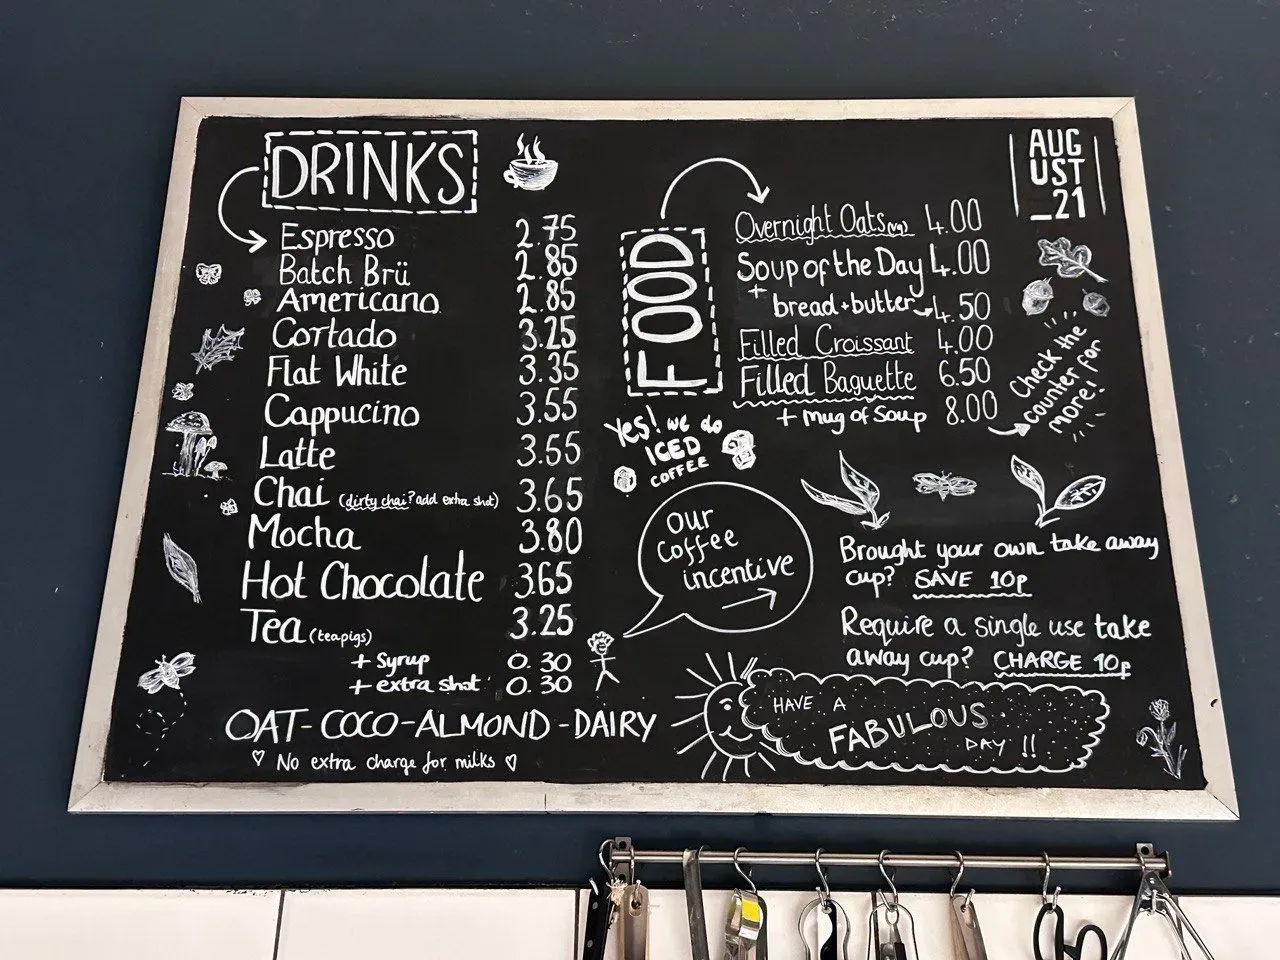 DRINKS
Espresso 2.75
Batch Brü 2.85
Americano 2.85
Cortado 3.25
Flat White 3.35
Cappucino 3.55
Latte 3.55
Chai (dirty chai? add extra shot) 3.65
Mocha 3.80
Hot Chocolate 3.65
Tea (teapigs) 3.25
+ Syrup 0.30
+ extra shot 0.30
OAT-COCO-ALMOND-DAIRY
♡ No extra charge for milks ♡
FOOD
Overnight Oats (vg) 4.00
Soup of the Day 4.00
+
bread + butter 4.50
Filled Croissant 4.00
Filled Baguette 6.50
+ Mug of Soup 8.00
Check the
counter for
more!
AUG
UST
_21
Yes! we do
ICED
COFFEE
Our
Coffee
incentive
Brought your own take away
cup? SAVE 10p
Require a single use take
away cup? CHARGE 10p
HAVE A
FABULOUS
DAY !!